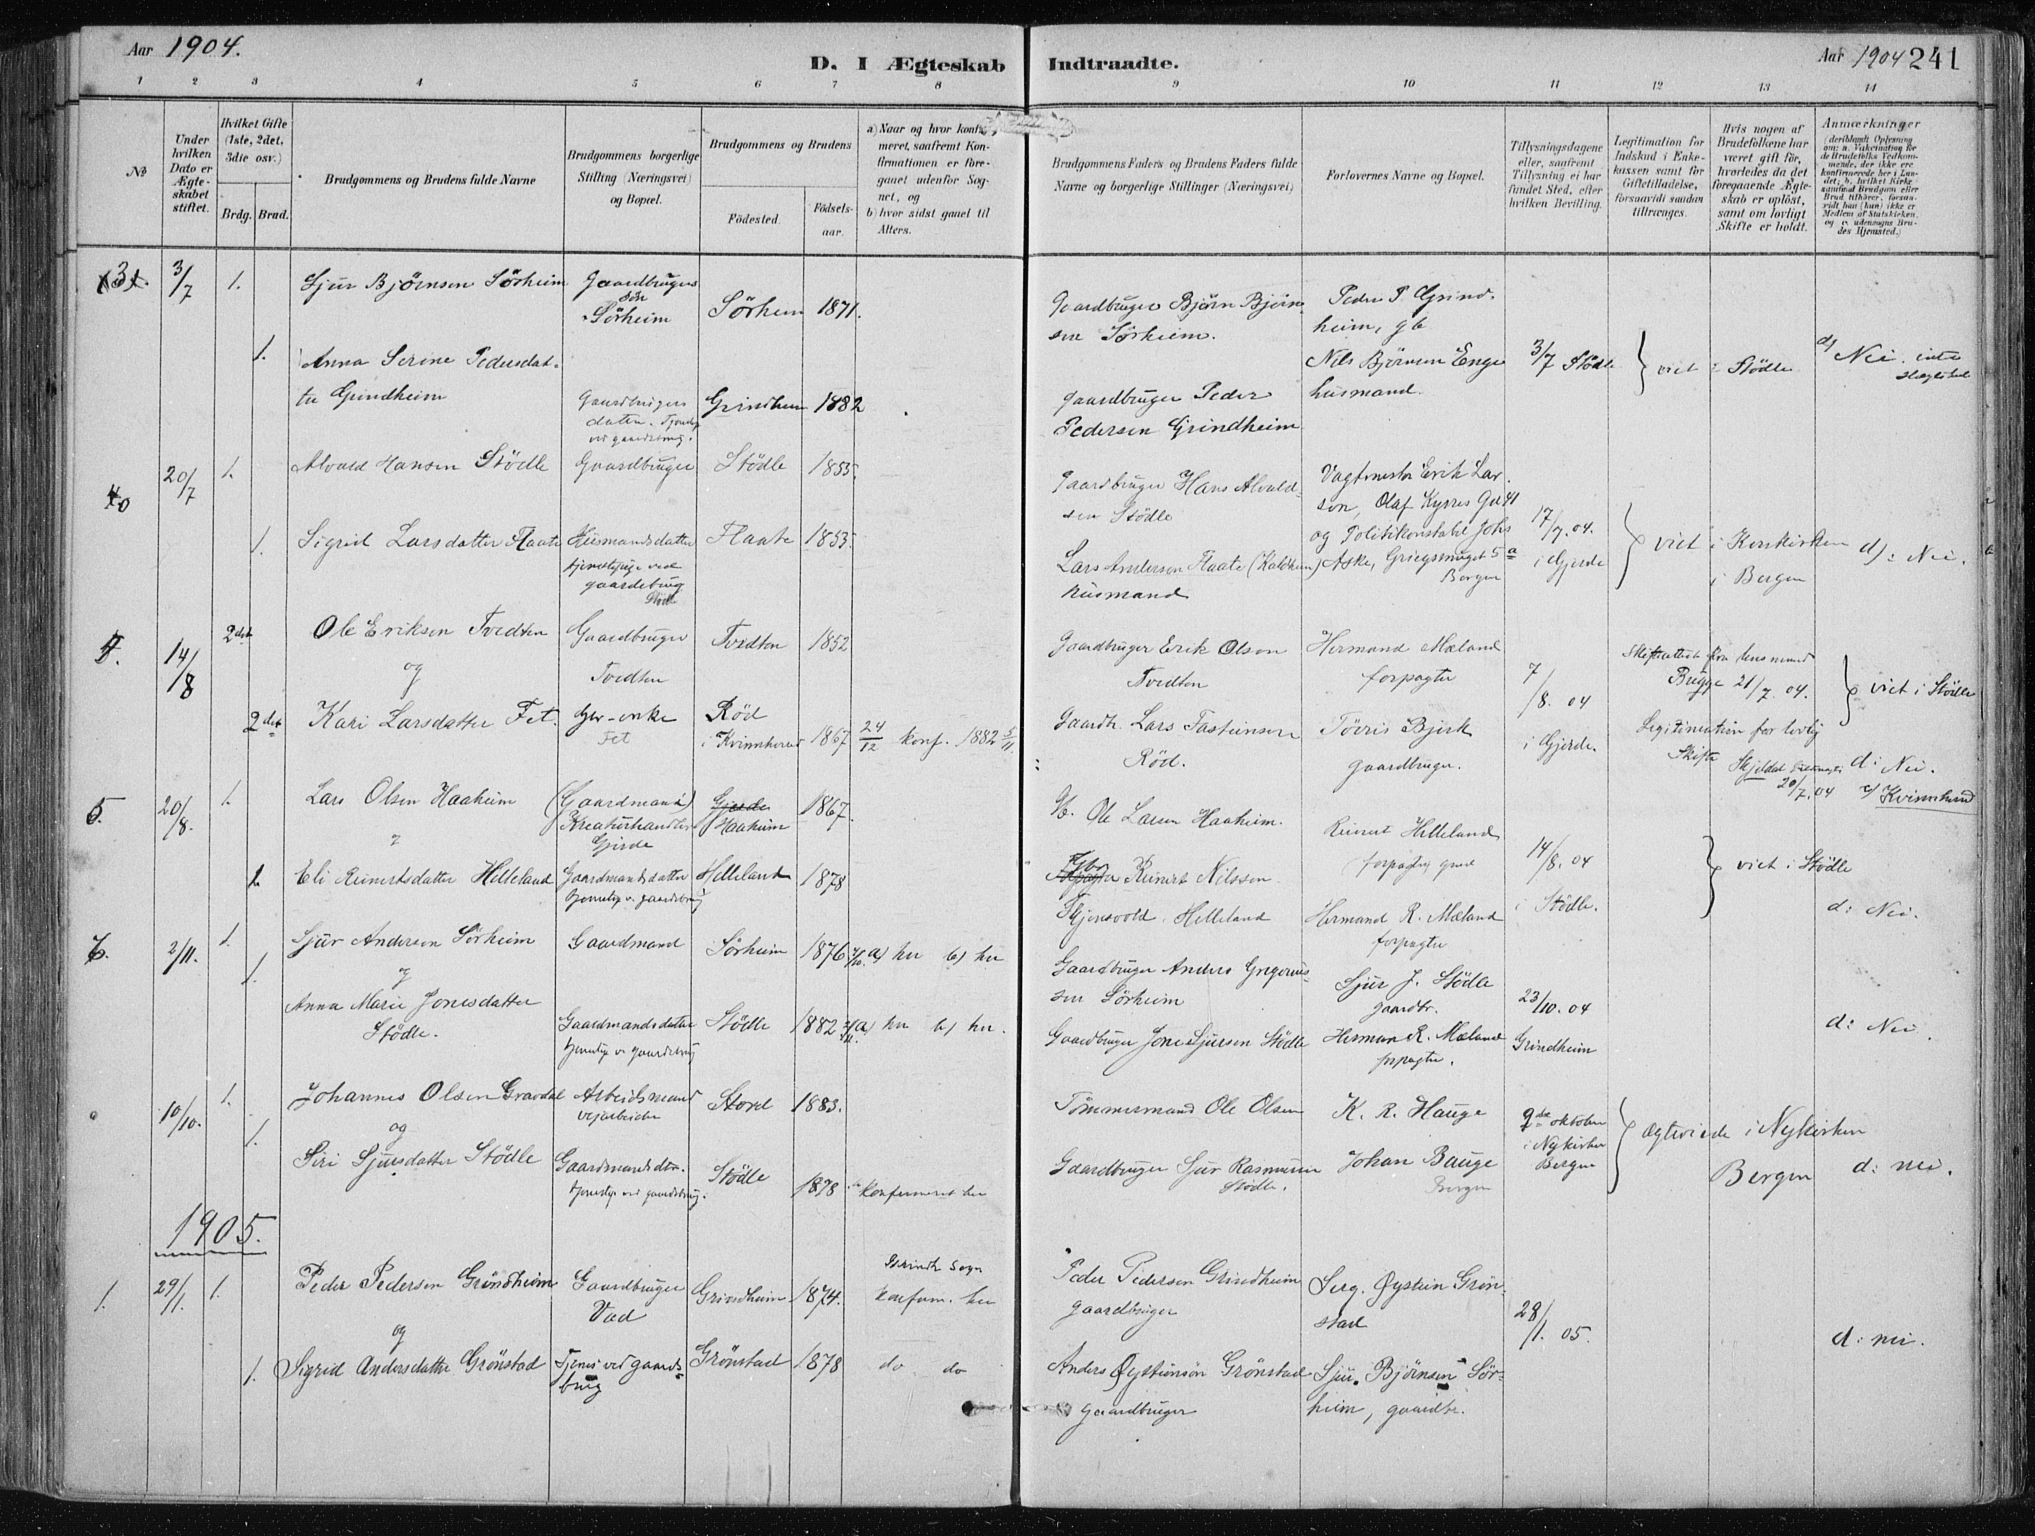 Aar 1904.
D. I Ægteskab Indtraadte.
Aar 1904 241
1 2 3 4 5 6 7 8 9 10 11 12 13 14
No
Under hvilken Dato er Ægteskabet stiftet.
Hvilket Gifte (1ste, 2det, 3die osv.)
Brdg. Brud.
Brudgommens og Brudens fulde Navne
Brudgommens borgerlige Stilling (Næringsvei) og Bopæl.
Brudgommens og Brudens
Födested. Födsels-aar.
a) Naar og hvor konfirmeret, saafremt Konfirmationen er foregaaet udenfor Sognet, og
b) hvor sidst gaaet til Alters.
Brudgommens Faders og Brudens Faders fulde Navne og borgerlige Stillinger (Næringsvei)
Forlovernes Navne og Bopæl.
Tillysningsdagene eller, saafremt Tillysning ei har fundet Sted, efter hvilken Bevilling.
Legitimation for Indskud i Enkekassen samt for Giftetilladelse, forsaavidt saadan tiltrænges.
Hvis nogen af Brudefolkene har været gift för, hvorledes da det foregaaende Ægteskab er oplöst, samt om lovligt Skifte er holdt.
Anmærkninger
3. 3/7 1. Sjur Björnsen Sörheim Gaardbrugers sön Sörheim Sörheim 1871.
Gaardbruger Björn Björnsen Sörheim.
Peder P. Grindheim, gb
1. Anna Serine Pedersdatter Grindheim Gaardbrugers datter. Grindheim 1882
gaardbruger Peder Pedersen Grindheim
Nils Björnsen Enge husmand.
3/7 Stödle viet i Stödle d) Nei.
4 20/7 1. Alvald Hansen Stödle Gaardbruger Stödle 1855.
Gaardbruger Hans Alvaldsen Stödle
Vagtmester Erik Larson, Olaf Kyrres Gd 41
1. Sigrid Larsdatter Flaate Husmandsdatter tjenestepige ved gaardsbrug Stödle Flaate 1853.
Lars Andersen Flaate (Kaldheim) husmand
og Politikonstabel Johs Aske, Griegsmuget 5 a Bergen
17/7.04. i Gjerde viet i Korskirken i Bergen d): Nei.
14/8 2det Ole Eriksen Tvedten Gaardbruger Tvedten Tvedten 1852
og
Gaardbruger Erik Olson Tvedten
Hermand Mæland forpagter
2det Kari Larsdatter Fet. enke Fet Röd i Kvinnherad 1867 24/12 konf. 1882 5/11
Gaardbr. Lars Tasteinsen Röd.
Tövris Bjerk gaardbruger.
7/8. 04 i Gjerde.
Skifteattest fra lensmand Bugge 21/7. 04.
Legitimation for lovlig Skifte
20/7.04
viet i Stödle
d: Nei.
Kvinnherad
5. 20/8. 1. Lars Olsen Haaheim (Gaardmand) Kreaturhandler Gjerde Haaheim 1867.
Ole Larsen Haaheim.
Reinert Helleland forpagter
1 Eli Reinertsdatter Helleland Gaardmandsdatter Helleland 1878
Reinert Nilssen Helleland
Hermand R. Mæland forpagter
14/8. 04 i Stödle. viet i Stödle
d: Nei.
6. 2/11. 1. Sjur Andersen Sörheim Gaardmand Sörheim 1876 a) her b) her
Gaardbruger Anders Gregoriussen Sörheim
Sjur J. Stödle gaardbr.
1. Anna Marie Jonesdatter Stödle. Gaardmandsdatter Stödle 1882 a) her b) her.
Gaardbruger Jone Sjursen Stödle
Herman R. Mæland forpagter.
23/10. 04 Grindheim
d: Nei
10/10. 1. Johannes Olsen Gravdal Arbeidsmand veiarbeider Stord 1883.
og
Tömmermand Ole Olsen
K. R. Hauge
1. Siri Sjursdatter Stödle Gaardmandsdtr. Stödle 1878 konfirmeret her
Gaardbruger Sjur Rasmussen Stödle.
Johan Bauge Bergen
9de oktober i Nykirken Bergen
Ægteviede i Nykirken Bergen
d: nei.
1905.
1. 29/1. 1. Peder Pedersen Grindheim Gaardbruger Vad Grindheim 1874. konfirm. her
og
Peder Pedersen Grindheim gaardbruger
Serg. Øystein Grönstad
1. Sigrid Andersdatter Grönstad Tjener ved gaardsbrug Grönstad 1878 do do
Anders Øysteinson Grönstad gaardbruger
Sjur Björnsen Sörheim, gaardbr.
28/1. 05.
d: nei.